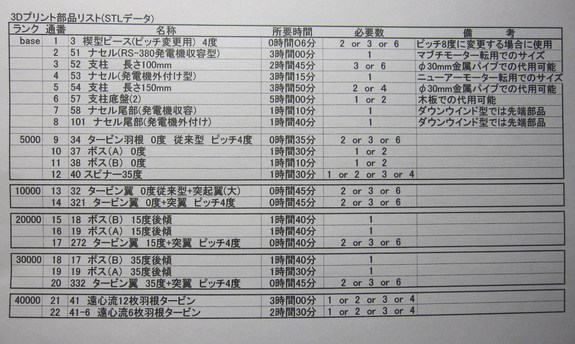 3Dプリント部品リスト(STLデータ)
ランク 通番 名称 所要時間 必要数 備考
base 1 3 楔型ピース(ピッチ変更用) 4度 0時間06分 2 or 3 or 6 ピッチ8度に変更する場合に使用
2 51 ナセル(RS-380発電機収容型) 3時間00分 1 マブチモーター転用でのサイズ
3 52 支柱 長さ100mm 2時間45分 3 or 6 φ30mm金属パイプでの代用可能
4 53 ナセル(発電機外付け型) 3時間15分 1 ニューアーモーター転用でのサイズ
5 54 支柱 長さ150mm 3時間50分 2 or 4 φ30mm金属パイプでの代用可能
6 57 支柱底盤(2) 5時間00分 1 or 2 木板での代用可能
7 58 ナセル尾部(発電機収容) 1時間10分 1 ダウンウインド型では先端部品
8 101 ナセル尾部(発電機外付け) 1時間40分 1 ダウンウインド型では先端部品
5000 9 34 タービン羽根 0度 従来型 ピッチ4度 0時間35分 2 or 3 or 6
10 37 ボス(A) 0度 1時間30分 1 or 2
11 38 ボス(B) 0度 1時間10分 1 or 2
12 40 スピナー35度 1時間30分 1 or 2 or 3 or 4
10000 13 32 タービン翼 0度従来型+突起翼(大) 0時間45分 2 or 3 or 6
14 321 タービン翼 0度+突翼 ピッチ4度 0時間45分 2 or 3 or 6
20000 15 18 ボス(B) 15度後傾 1時間40分 1
16 19 ボス(A) 15度後傾 1時間40分 1
17 272 タービン翼 15度+突翼 ピッチ4度 0時間45分 2 or 3 or 6
30000 18 17 ボス(B) 35度後傾 1時間40分 1
19 19 ボス(A) 35度後傾 1時間30分 1
20 332 タービン翼 35度+突翼 ピッチ4度 0時間45分 2 or 3 or 6
40000 21 41 遠心流12枚羽根タービン 3時間00分 1 or 2 or 3 or 4
22 41-6 遠心流6枚羽根タービン 2時間30分 1 or 2 or 3 or 4